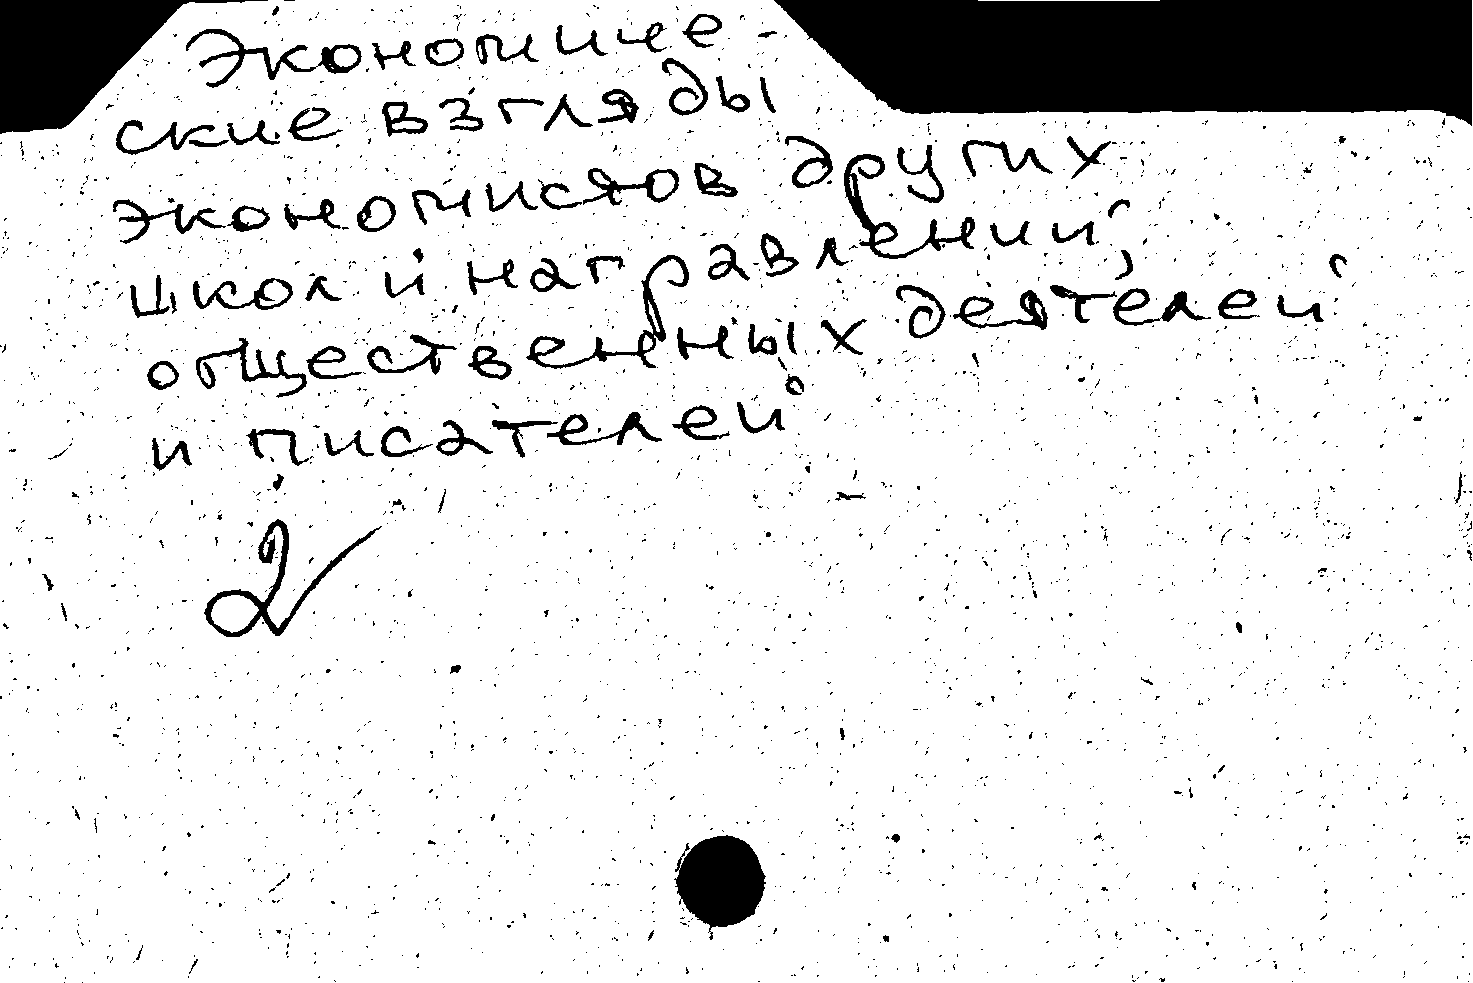 Экономиче-
ские взгляды
экономистов других
школ и направлений,
общественных деятелей
и писателей
2